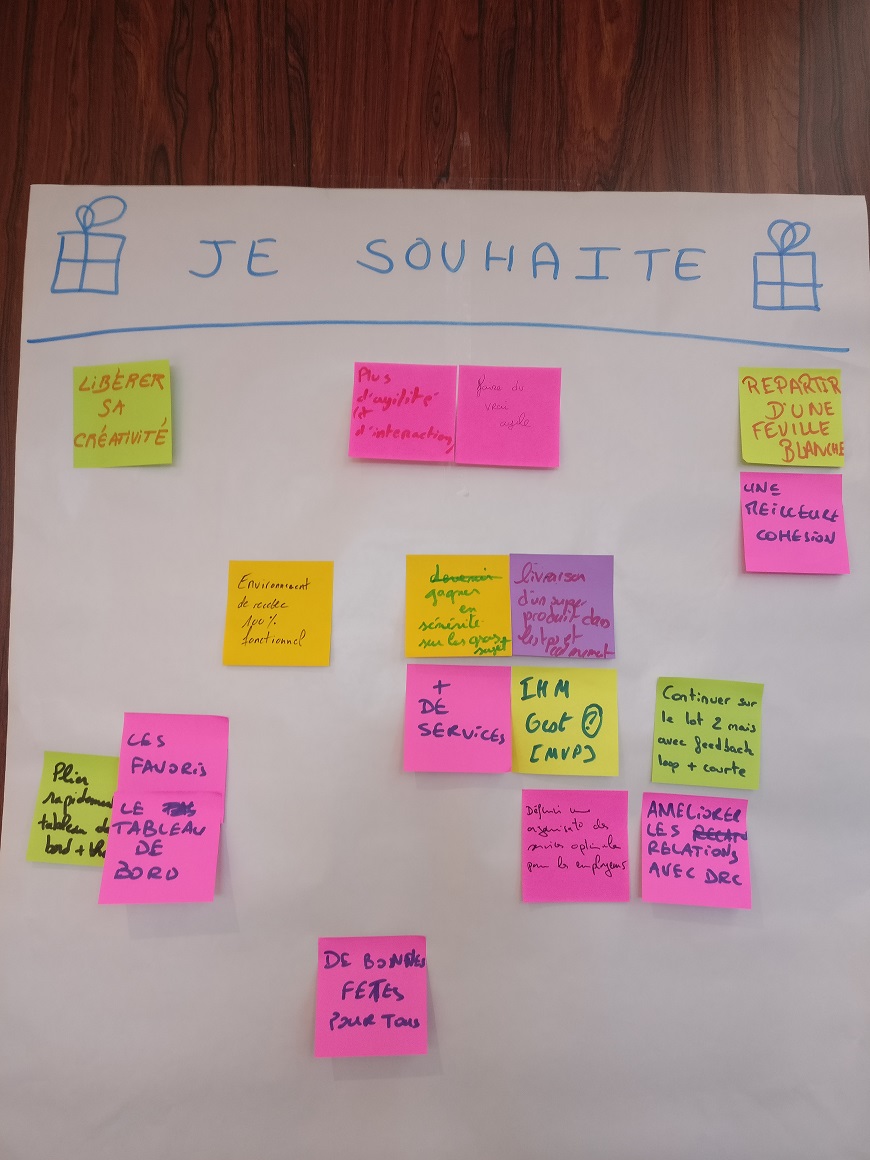 JE SOUHAITE
LIBÉRER
SA
CRÉATIVITÉ
Plus
d'agilité
et
d'interaction
faire du
vrai
agile
REPARTIR
D'UNE
FEUILLE
BLANCHE
UNE
MEILLEURE
COHESION
Environnement
de recette
100%
fonctionnel
devenir
gagner
en
sérénité
sur les gros
sujet
livraison
d'un super
produit dans
les tps et
comment
+
DE
SERVICES
IHM
Gest ?
[MVP]
Continuer sur
le lot 2 mais
avec feedback
loop + courte
LES
FAVORIS
Plier
rapidement
tableau de
bord +
LE
TABLEAU
DE
BORD
Définir une
des
services optimale
pour les employeurs
AMELIORER
LES
RELATIONS
AVEC DRC
DE BONNES
FETES
POUR TOUS